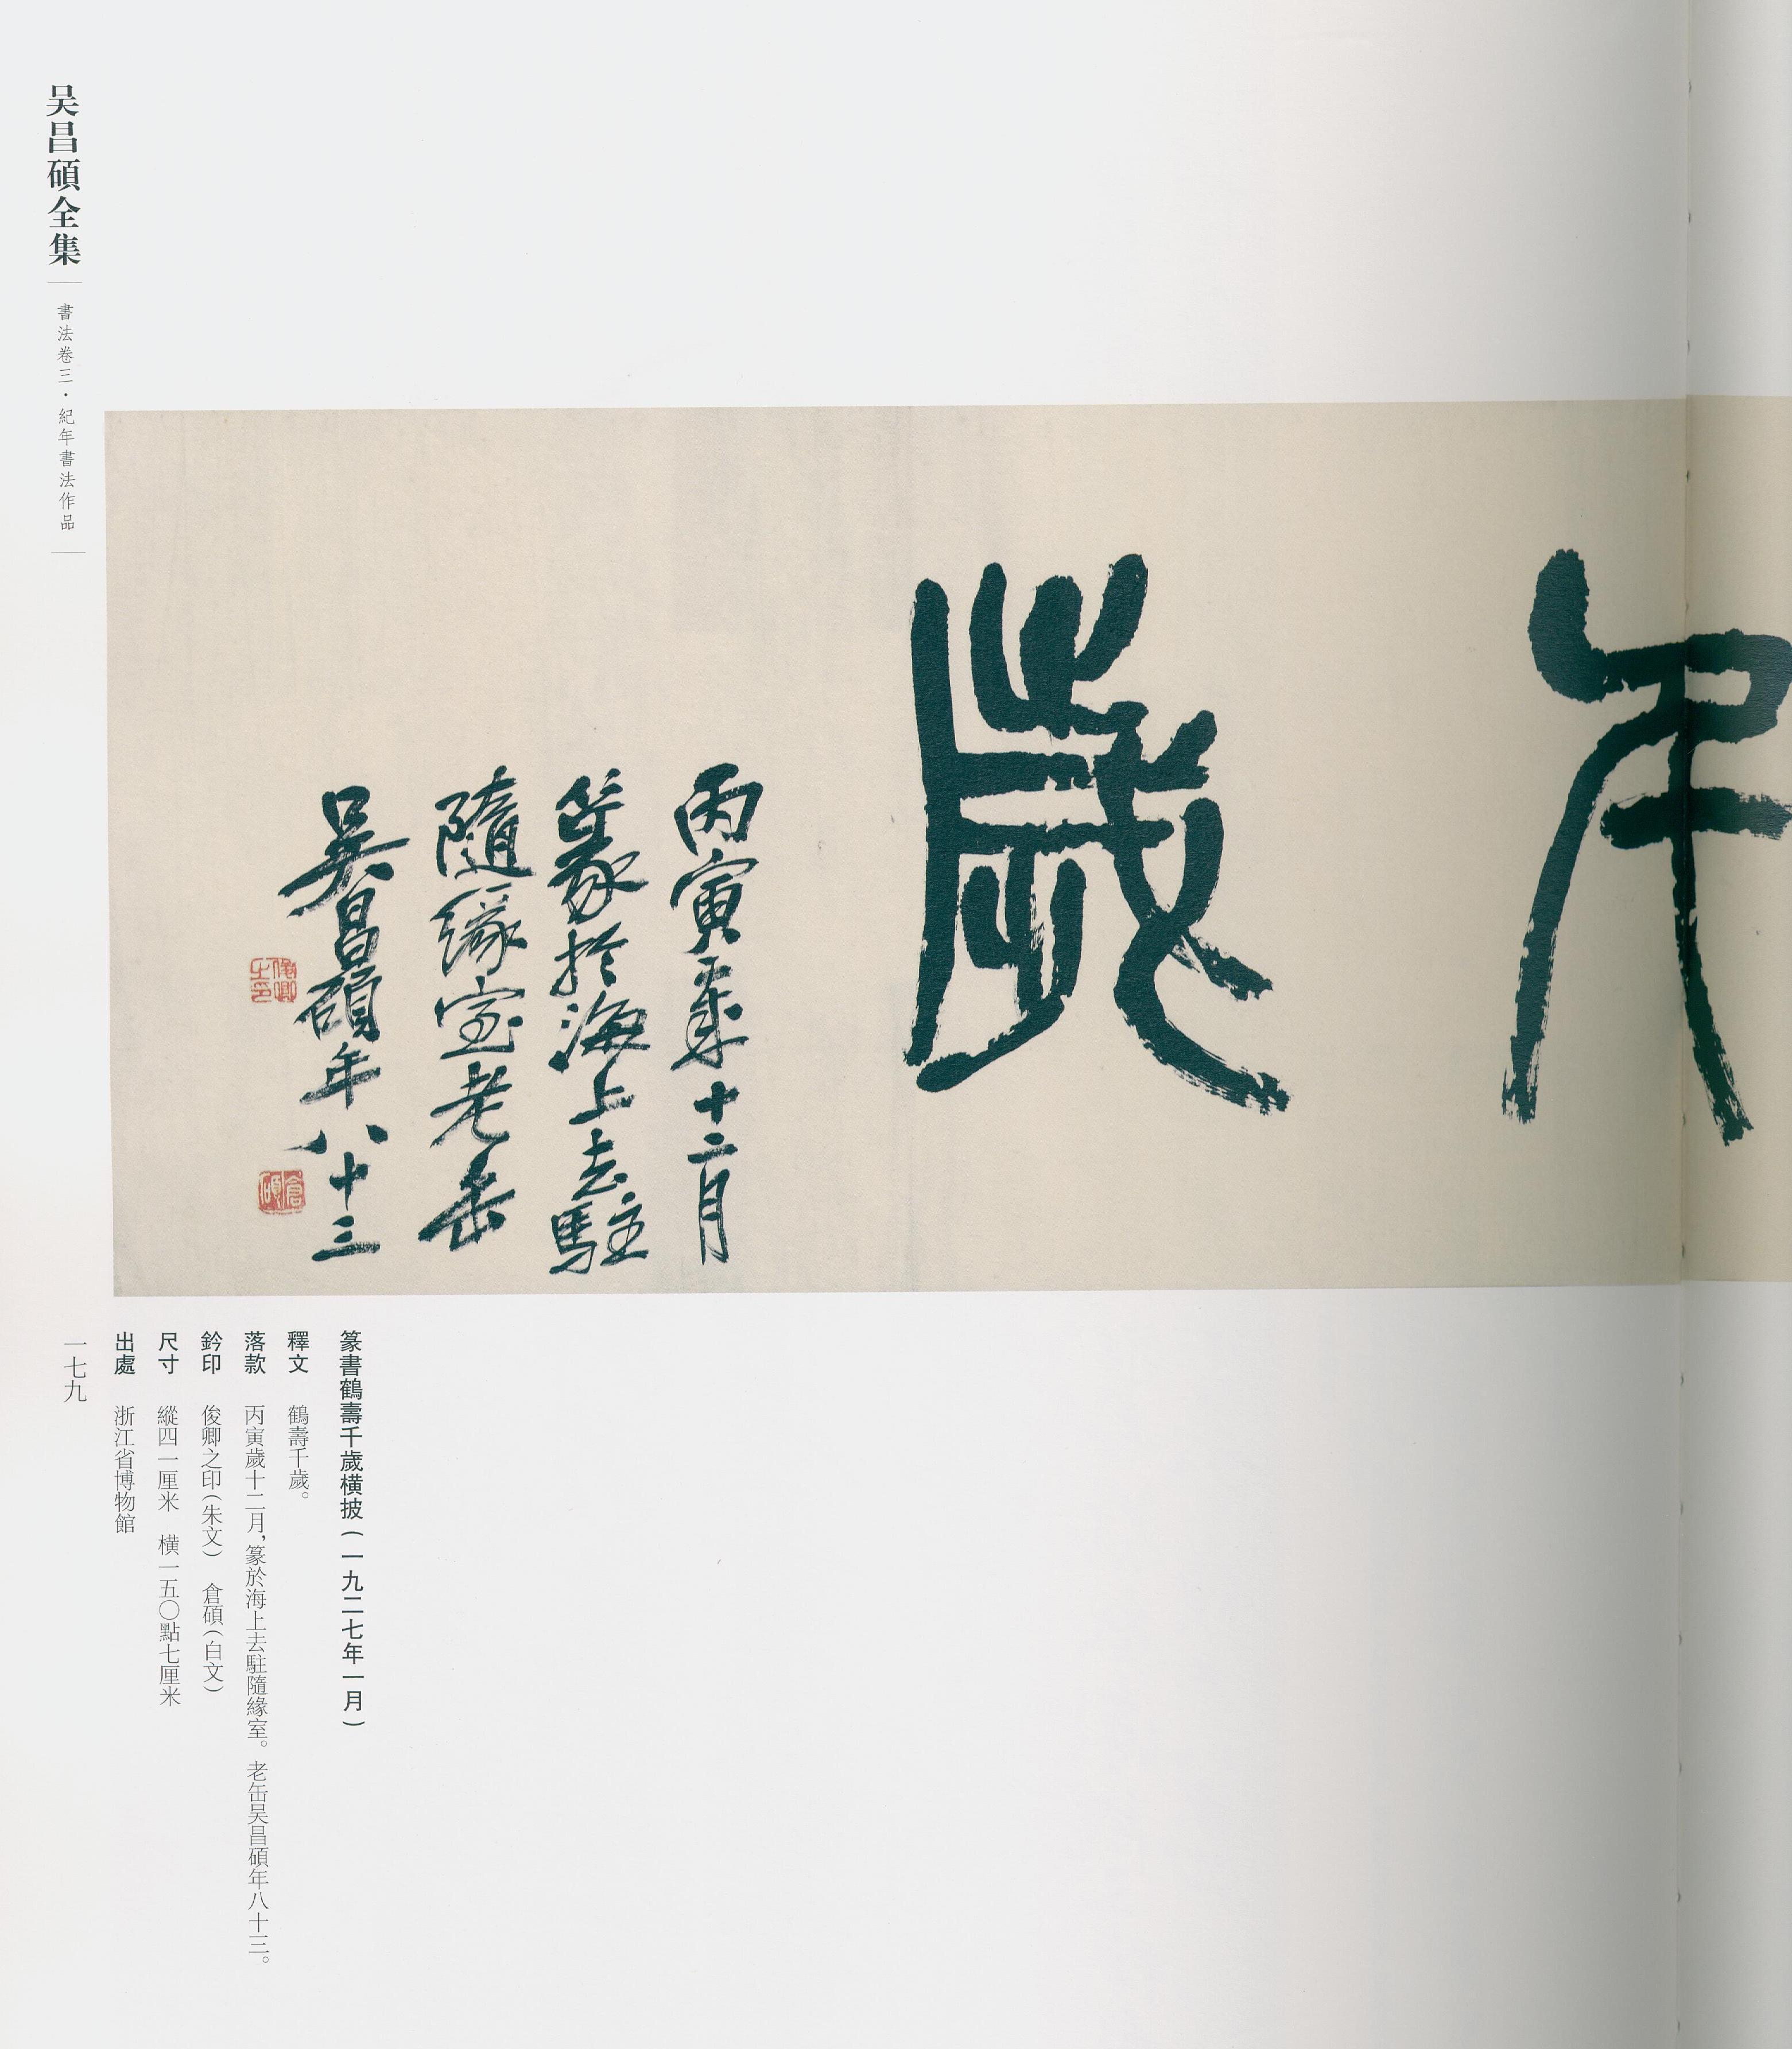 千歲
丙寅歲十二月
篆於海上去駐
隨緣室老缶
吴昌碩年八十三
俊卿之印
倉碩
篆書鶴壽千歲横披（一九二七年一月）
釋文　鶴壽千歲。
落款　丙寅歲十二月，篆於海上去駐隨緣室。老缶吴昌碩年八十三。
鈐印　俊卿之印（朱文）　倉碩（白文）
尺寸　縱四一厘米　横一五〇點七厘米
出處　浙江省博物館
吴昌碩全集
書法卷三·紀年書法作品
一七九